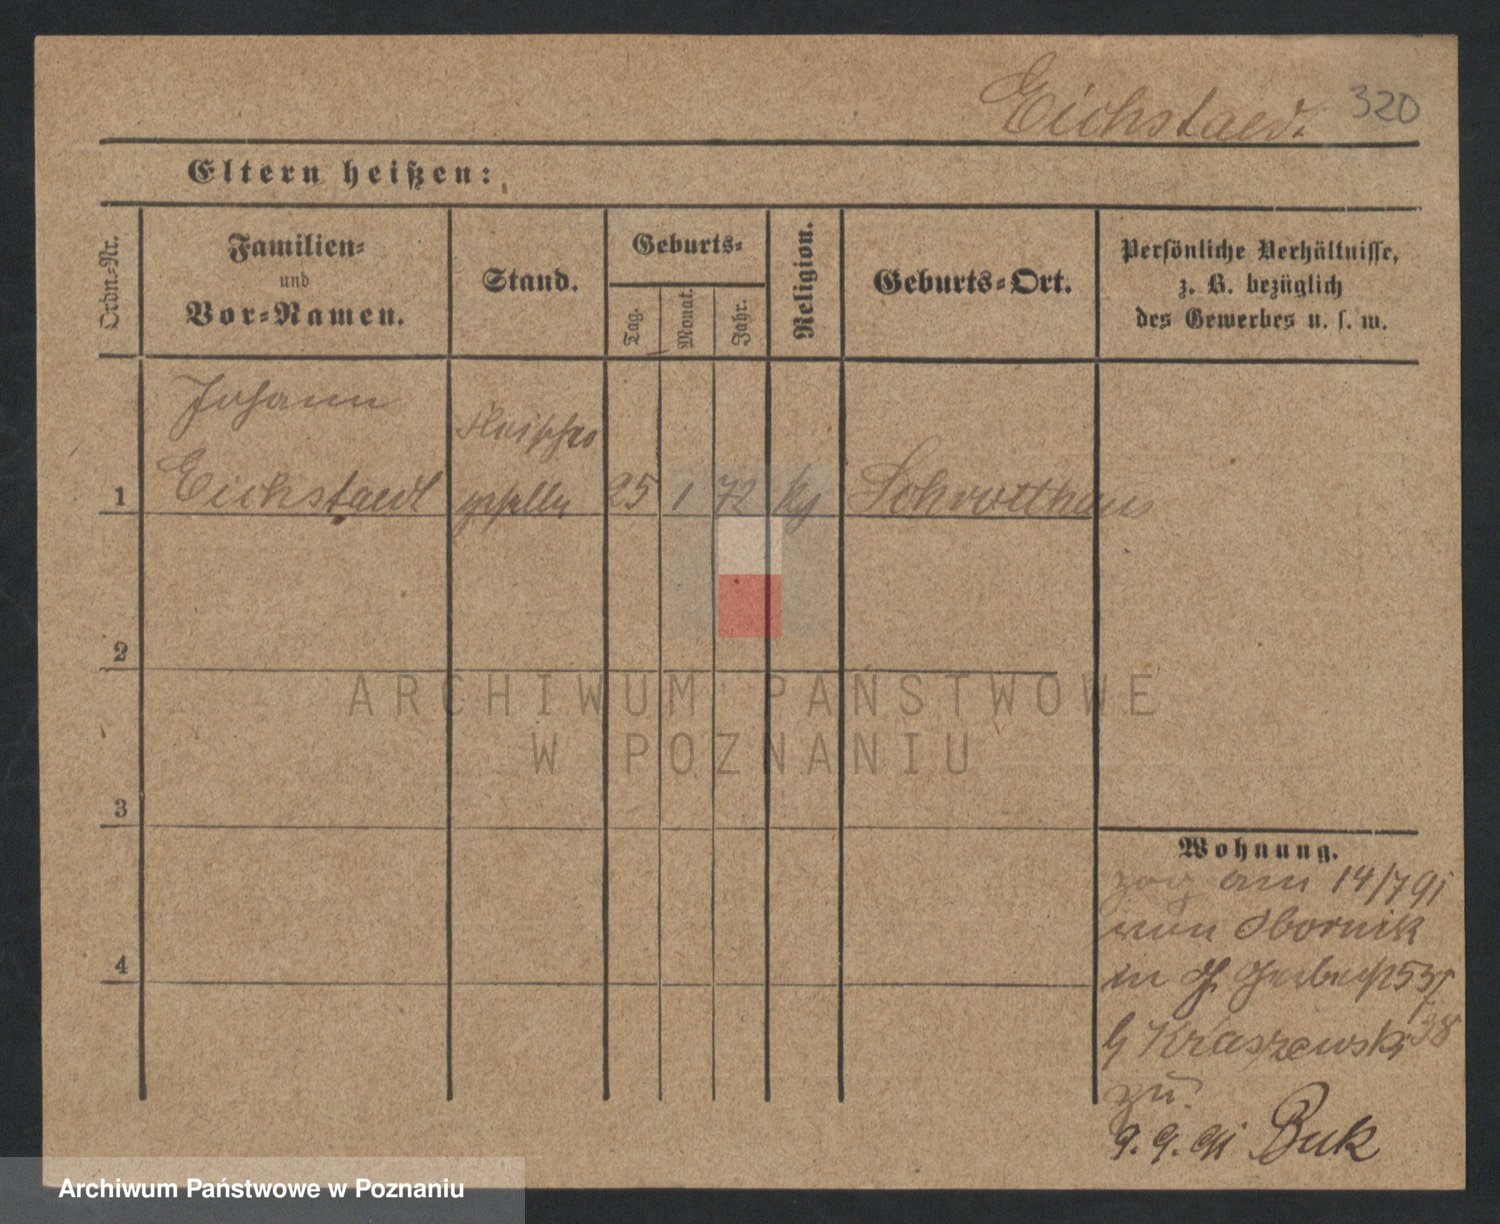 Eichstaed.
320
Eltern heißen:
Ordn.-Nr.
Familien-
und
Vor-Namen.
Stand.
Geburts-
Tag.
Monat.
Jahr.
Religion.
Geburts-Ort.
Persönliche Verhältnisse,
z. B. bezüglich
des Gewerbes u. s. w.
Johann
Fleischer
1 Eichstaedt geselle 25 1 72 kg Schrotthaus
2
ARCHIWUM PAŃSTWOWE
W POZNANIU
3
Wohnung.
zog am 14/7 91
von Obornik
4
in
b Kraszewski 38
zu.
9.9.91 Buk
Archiwum Państwowe w Poznaniu